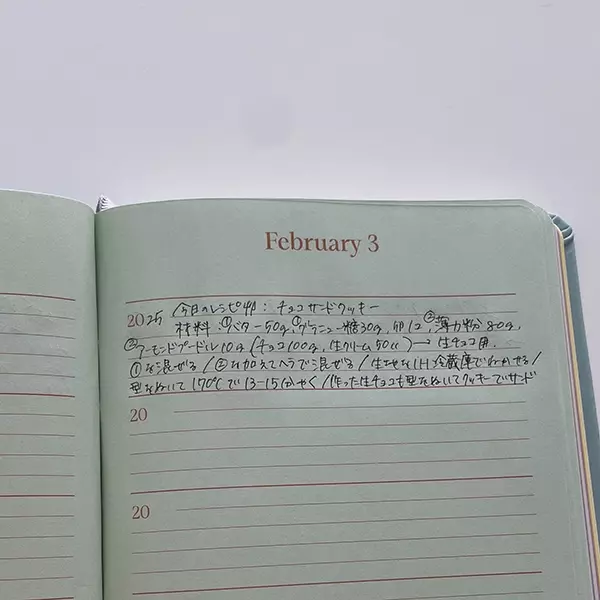 February 3
2025 今日のレシピ : チョコサンドクッキー
材料:①バター50g ①グラニュー糖30g, 卵1コ, ②薄力粉80g,
②アーモンドプードル10g (チョコ100g, 生クリーム50cc) → 生チョコ用.
①を混ぜる / ②を加えてヘラで混ぜる / 生地を1H冷蔵庫でねかせる /
型をぬいて170℃で13-15分やく / 作った生チョコも型をぬいてクッキーでサンド
20
20